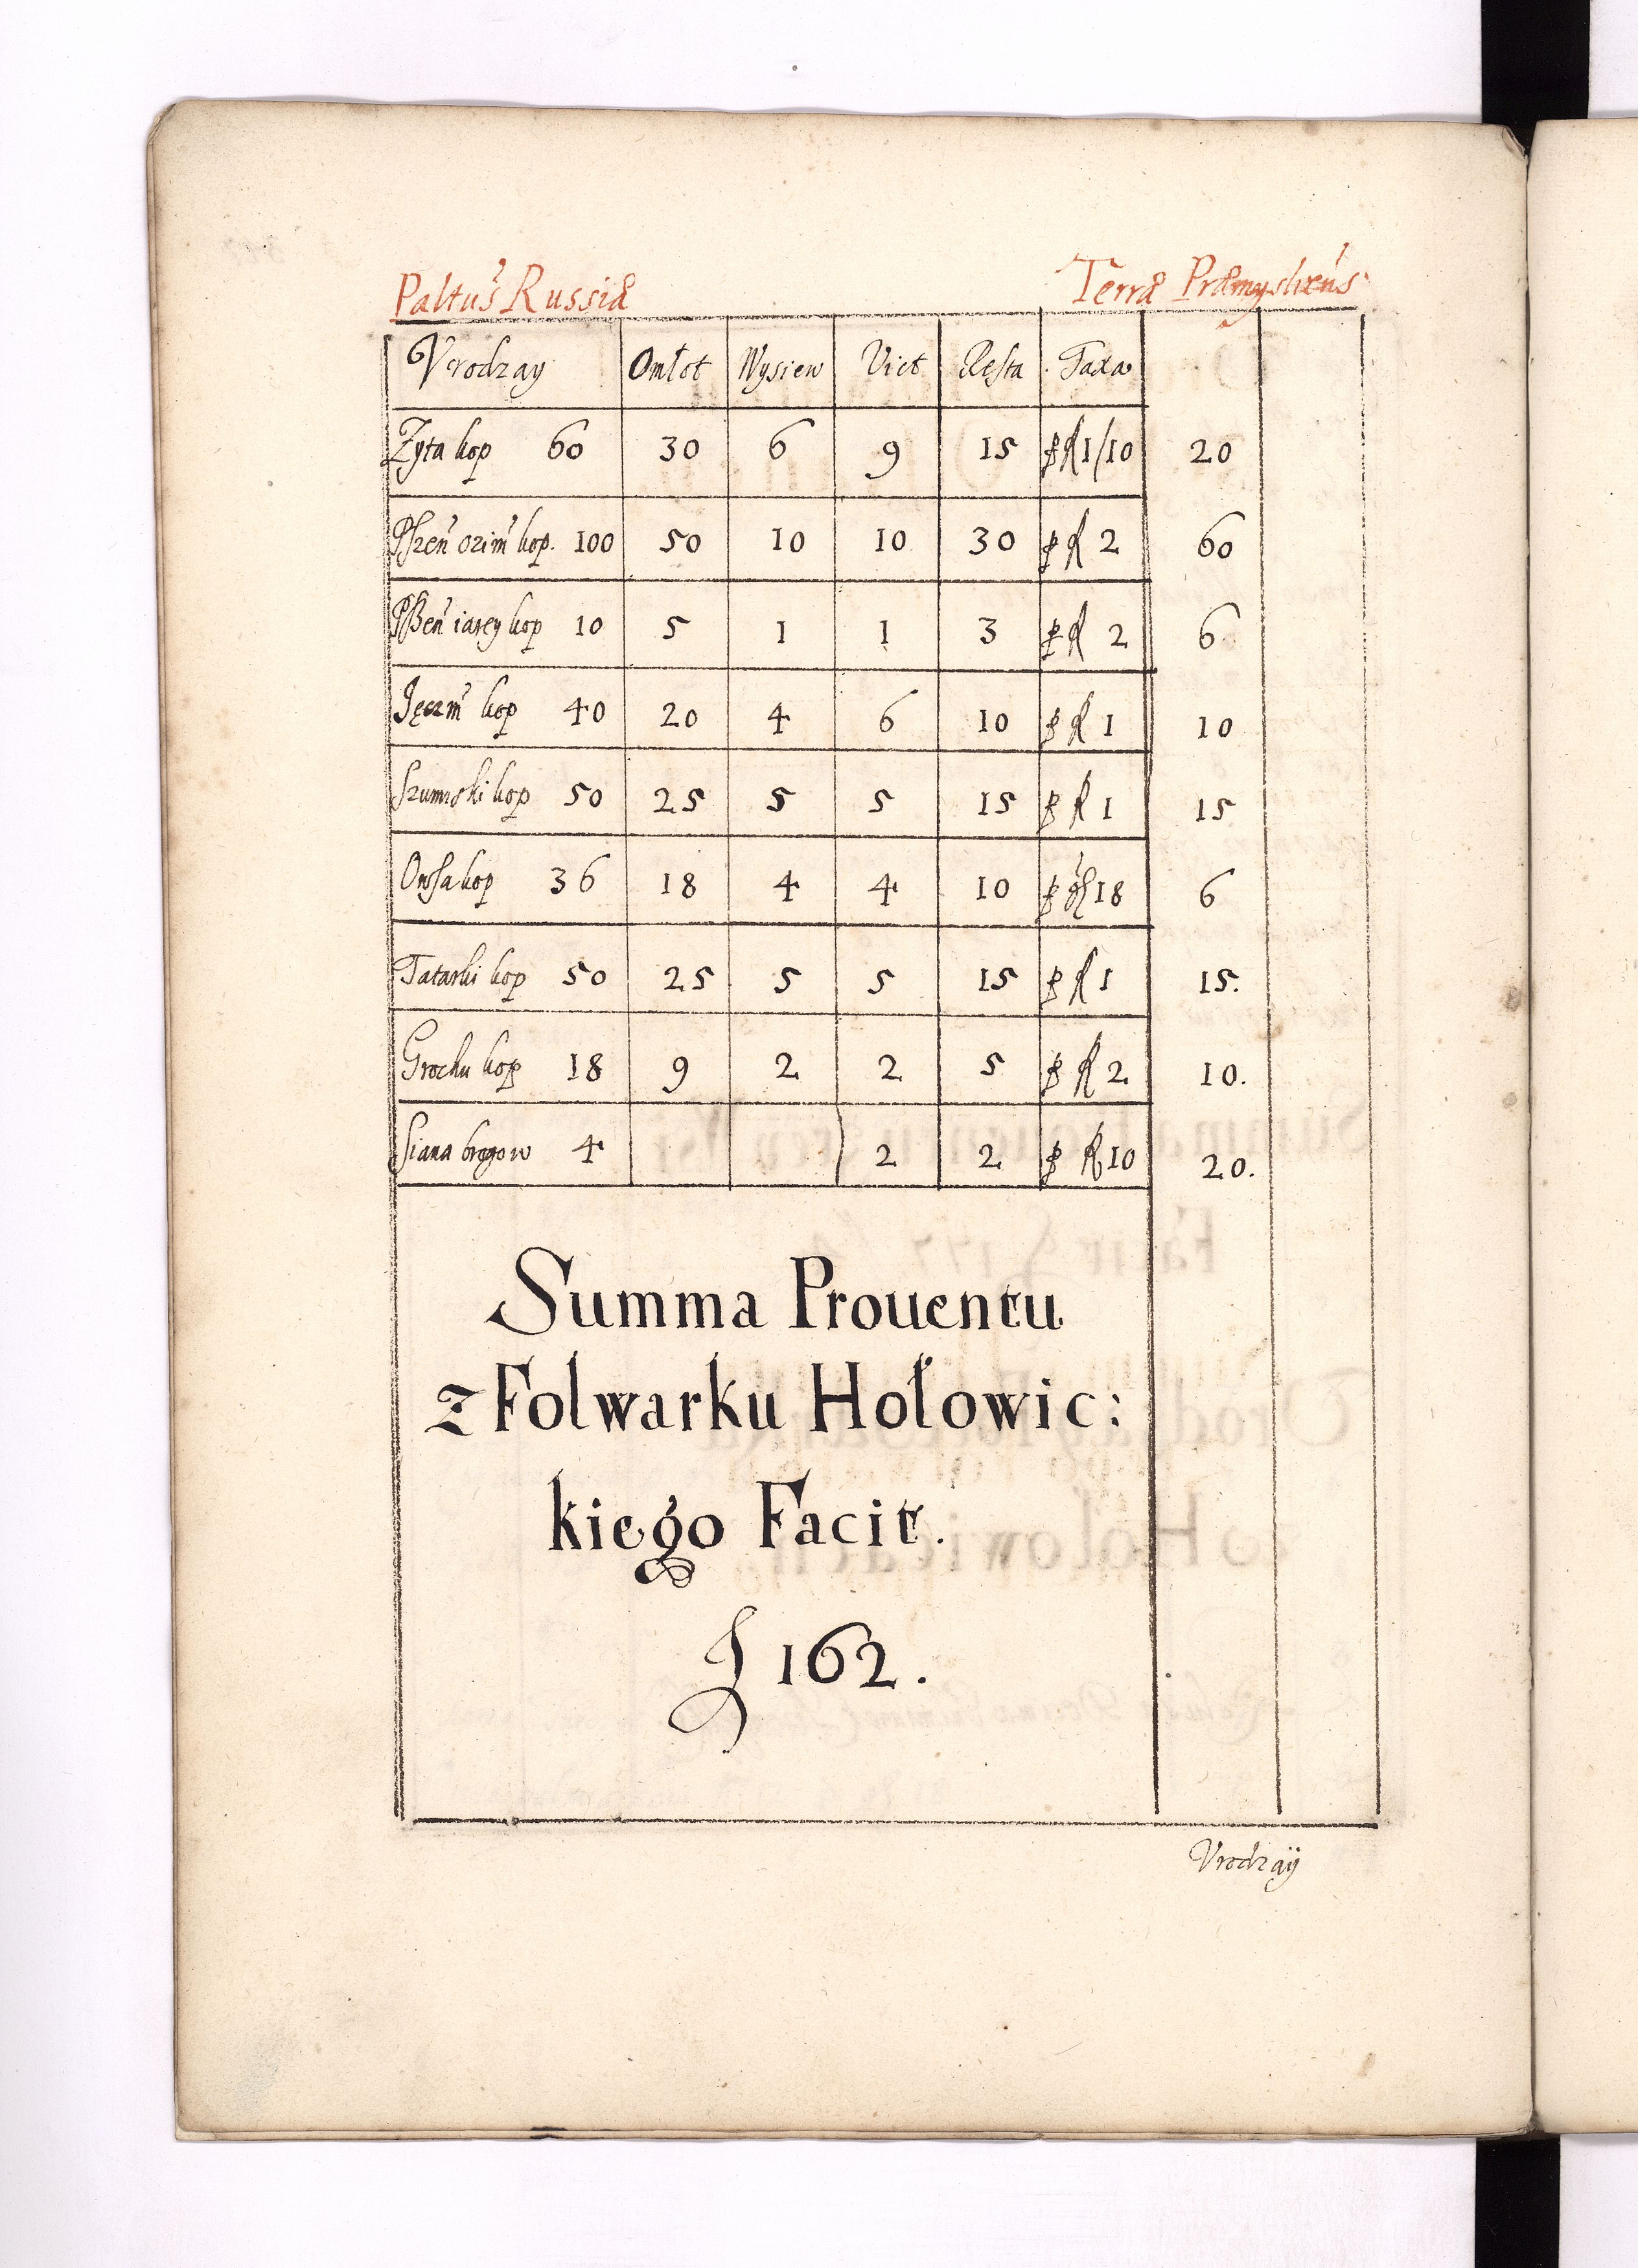 Paltus Russiæ Terræ Præmysliens
Vrodzay Omłot Wysiew Vict Resta Taxa
Zyta kop 60 30 6 9 15 1/10 20
Pszeń ozim kop. 100 50 10 10 30 2 60
Pszeń iarey kop 10 5 1 1 3 2 6
Jęczm kop 40 20 4 6 10 1 10
kop 50 25 5 5 15 1 15
Owsa kop 36 18 4 4 10 18 6
Tatarki kop 50 25 5 5 15 1 15.
Grochu kop 18 9 2 2 5 2 10.
Siana brogow 4 2 2 10 20.
Summa Prouentu
z Folwarku Hołowic:
kiego Facit.
162.
Vrodzaÿ